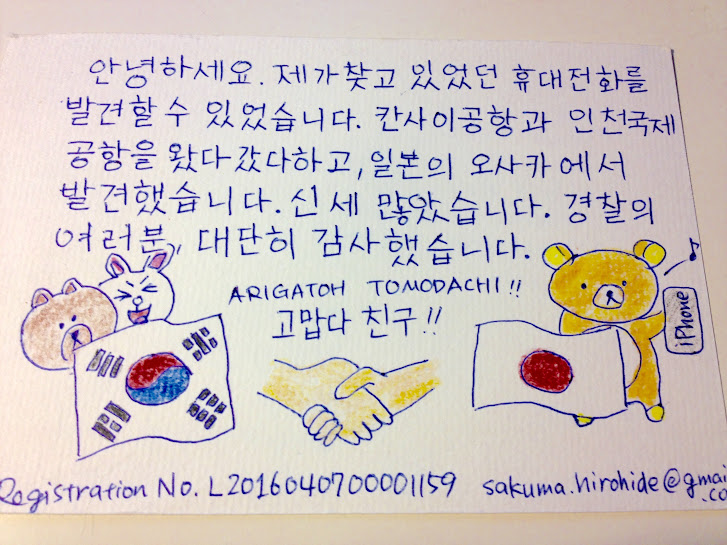 안녕하세요. 제가 찾고 있었던 휴대전화를
발견할 수 있었습니다. 칸사이공항과 인천국제
공항을 왔다갔다하고, 일본의 오사카에서
발견했습니다. 신세 많았습니다. 경찰의
여러분, 대단히 감사했습니다.
ARIGATOH TOMODACHI!!
고맙다 친구!!
iPhone
Registration No. L2016040700001159 sakuma.hirohide@gmai
.co